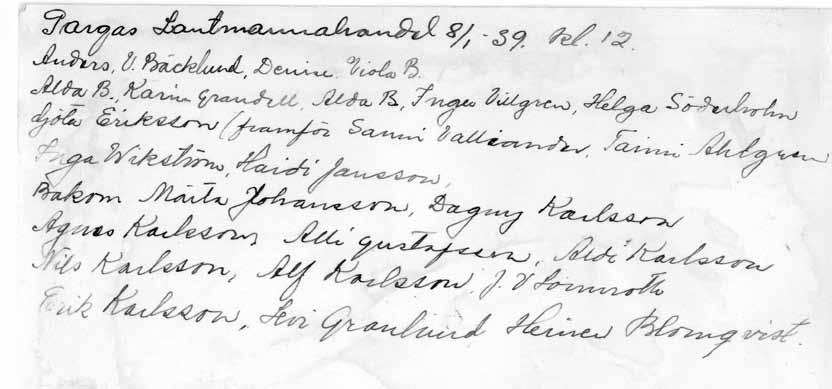 Pargas Lantmannahandel 8/1-39. kl. 12.
Anders, V. Bäcklund, Denise. Viola B.
Alda B. Karin Grandell, Alda B, Inger Villgren, Helga Söderholm
Göta Eriksson (framför Sanni Valliander, Taimi Ahlgren
Inga Wikström, Haidi Jansson,
Bakom Märta Johansson, Dagny Karlsson
Agnes Karlsson, Alli Gustafsson, Aldi Karlsson
Nils Karlsson, Alf Karlsson, J. V
Erik Karlsson, Granlund Blomqvist.